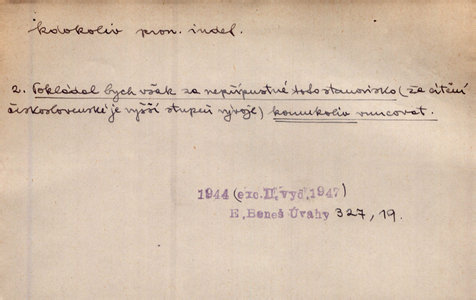 kdokoliv pron. indef.
2. Pokládal bych však za nepřípustné toto stanovisko (že cítění
československé je vyšší stupeň vývoje) komukoliv vnucovat.
1944 (exc. II. vyd. 1947)
E. Beneš Úvahy 327, 19.